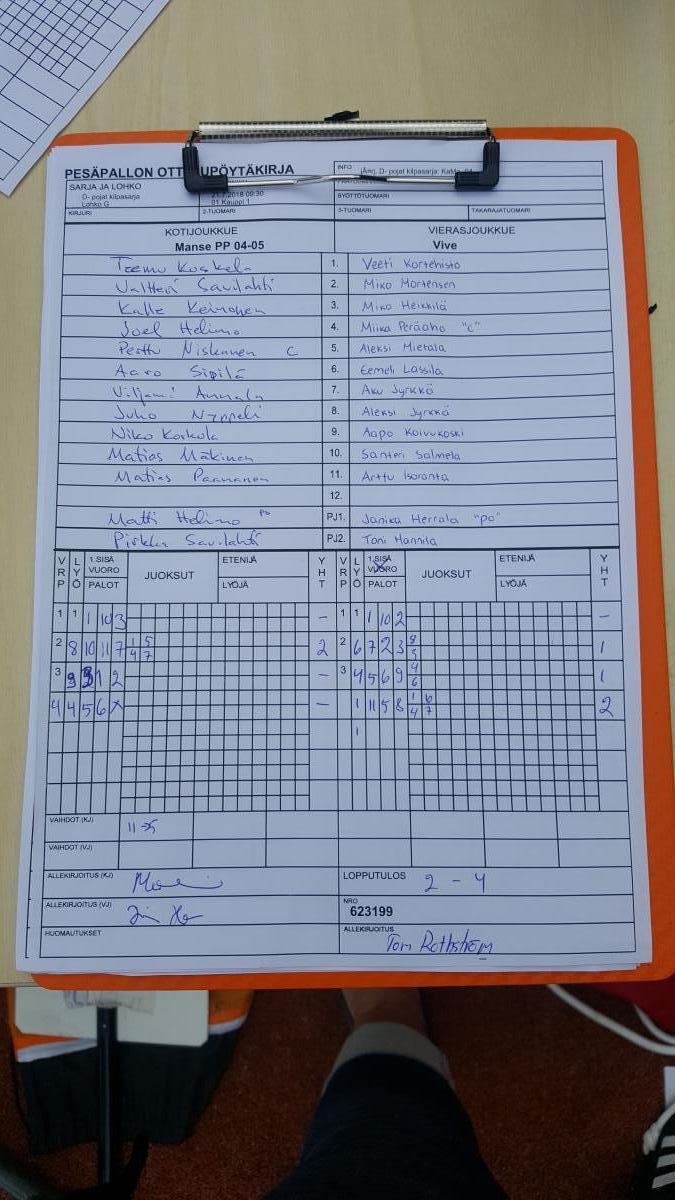 PESÄPALLON OTT UPÖYTÄKIRJA
INFO
D- pojat kilpasarja: KaMa
SARJA JA LOHKO
D- pojat kilpasarja
Lohko G
2018 09:30
01 Kauppi 1
SYÖTTÖTUOMARI
KIRJURI 2-TUOMARI 3-TUOMARI TAKARAJATUOMARI
KOTIJOUKKUE VIERASJOUKKUE
Manse PP 04-05 Vive
Teemu Koskela 1. Veeti Kortehisto
Valtteri Savilahti 2. Miko Mortensen
Kalle Keinonen 3. Miko Heikkilä
Joel Helimo 4. Miika Peräaho "c"
Perttu Niskanen C 5. Aleksi Mietala
Aaro Sipilä 6. Eemeli Lassila
Viljami Annala 7. Aku Jyrkkä
Juho Nyppeli 8. Aleksi Jyrkkä
Niko Koskela 9. Aapo Koivukoski
Matias Mäkinen 10. Santeri Salmela
Matias Paananen 11. Arttu Isoranta
12.
Matti Helimo PJ1. Janika Herrala "po"
Pirkka Savilahti PJ2. Toni Hannila
VRP LYÖ 1.SISÄ VUORO PALOT JUOKSUT ETENIJÄ LYÖJÄ YHT VRP LYÖ 1.SISÄ VUORO PALOT JUOKSUT ETENIJÄ LYÖJÄ YHT
1 1 1 10 3 – 1 1 1 10 2 –
2 8 10 11 7 1/4 5/7 2 2 6 7 2 3 1
3 1 2 – 3 4 5 6 9 4/6 1
4 4 5 6 X – 1 11 5 8 1/4 6/7 2
1
VAIHDOT (KJ) 11
VAIHDOT (VJ)
ALLEKIRJOITUS (KJ) LOPPUTULOS 2 - 4
ALLEKIRJOITUS (VJ) NRO
623199
HUOMAUTUKSET ALLEKIRJOITUS
Tom Rothström